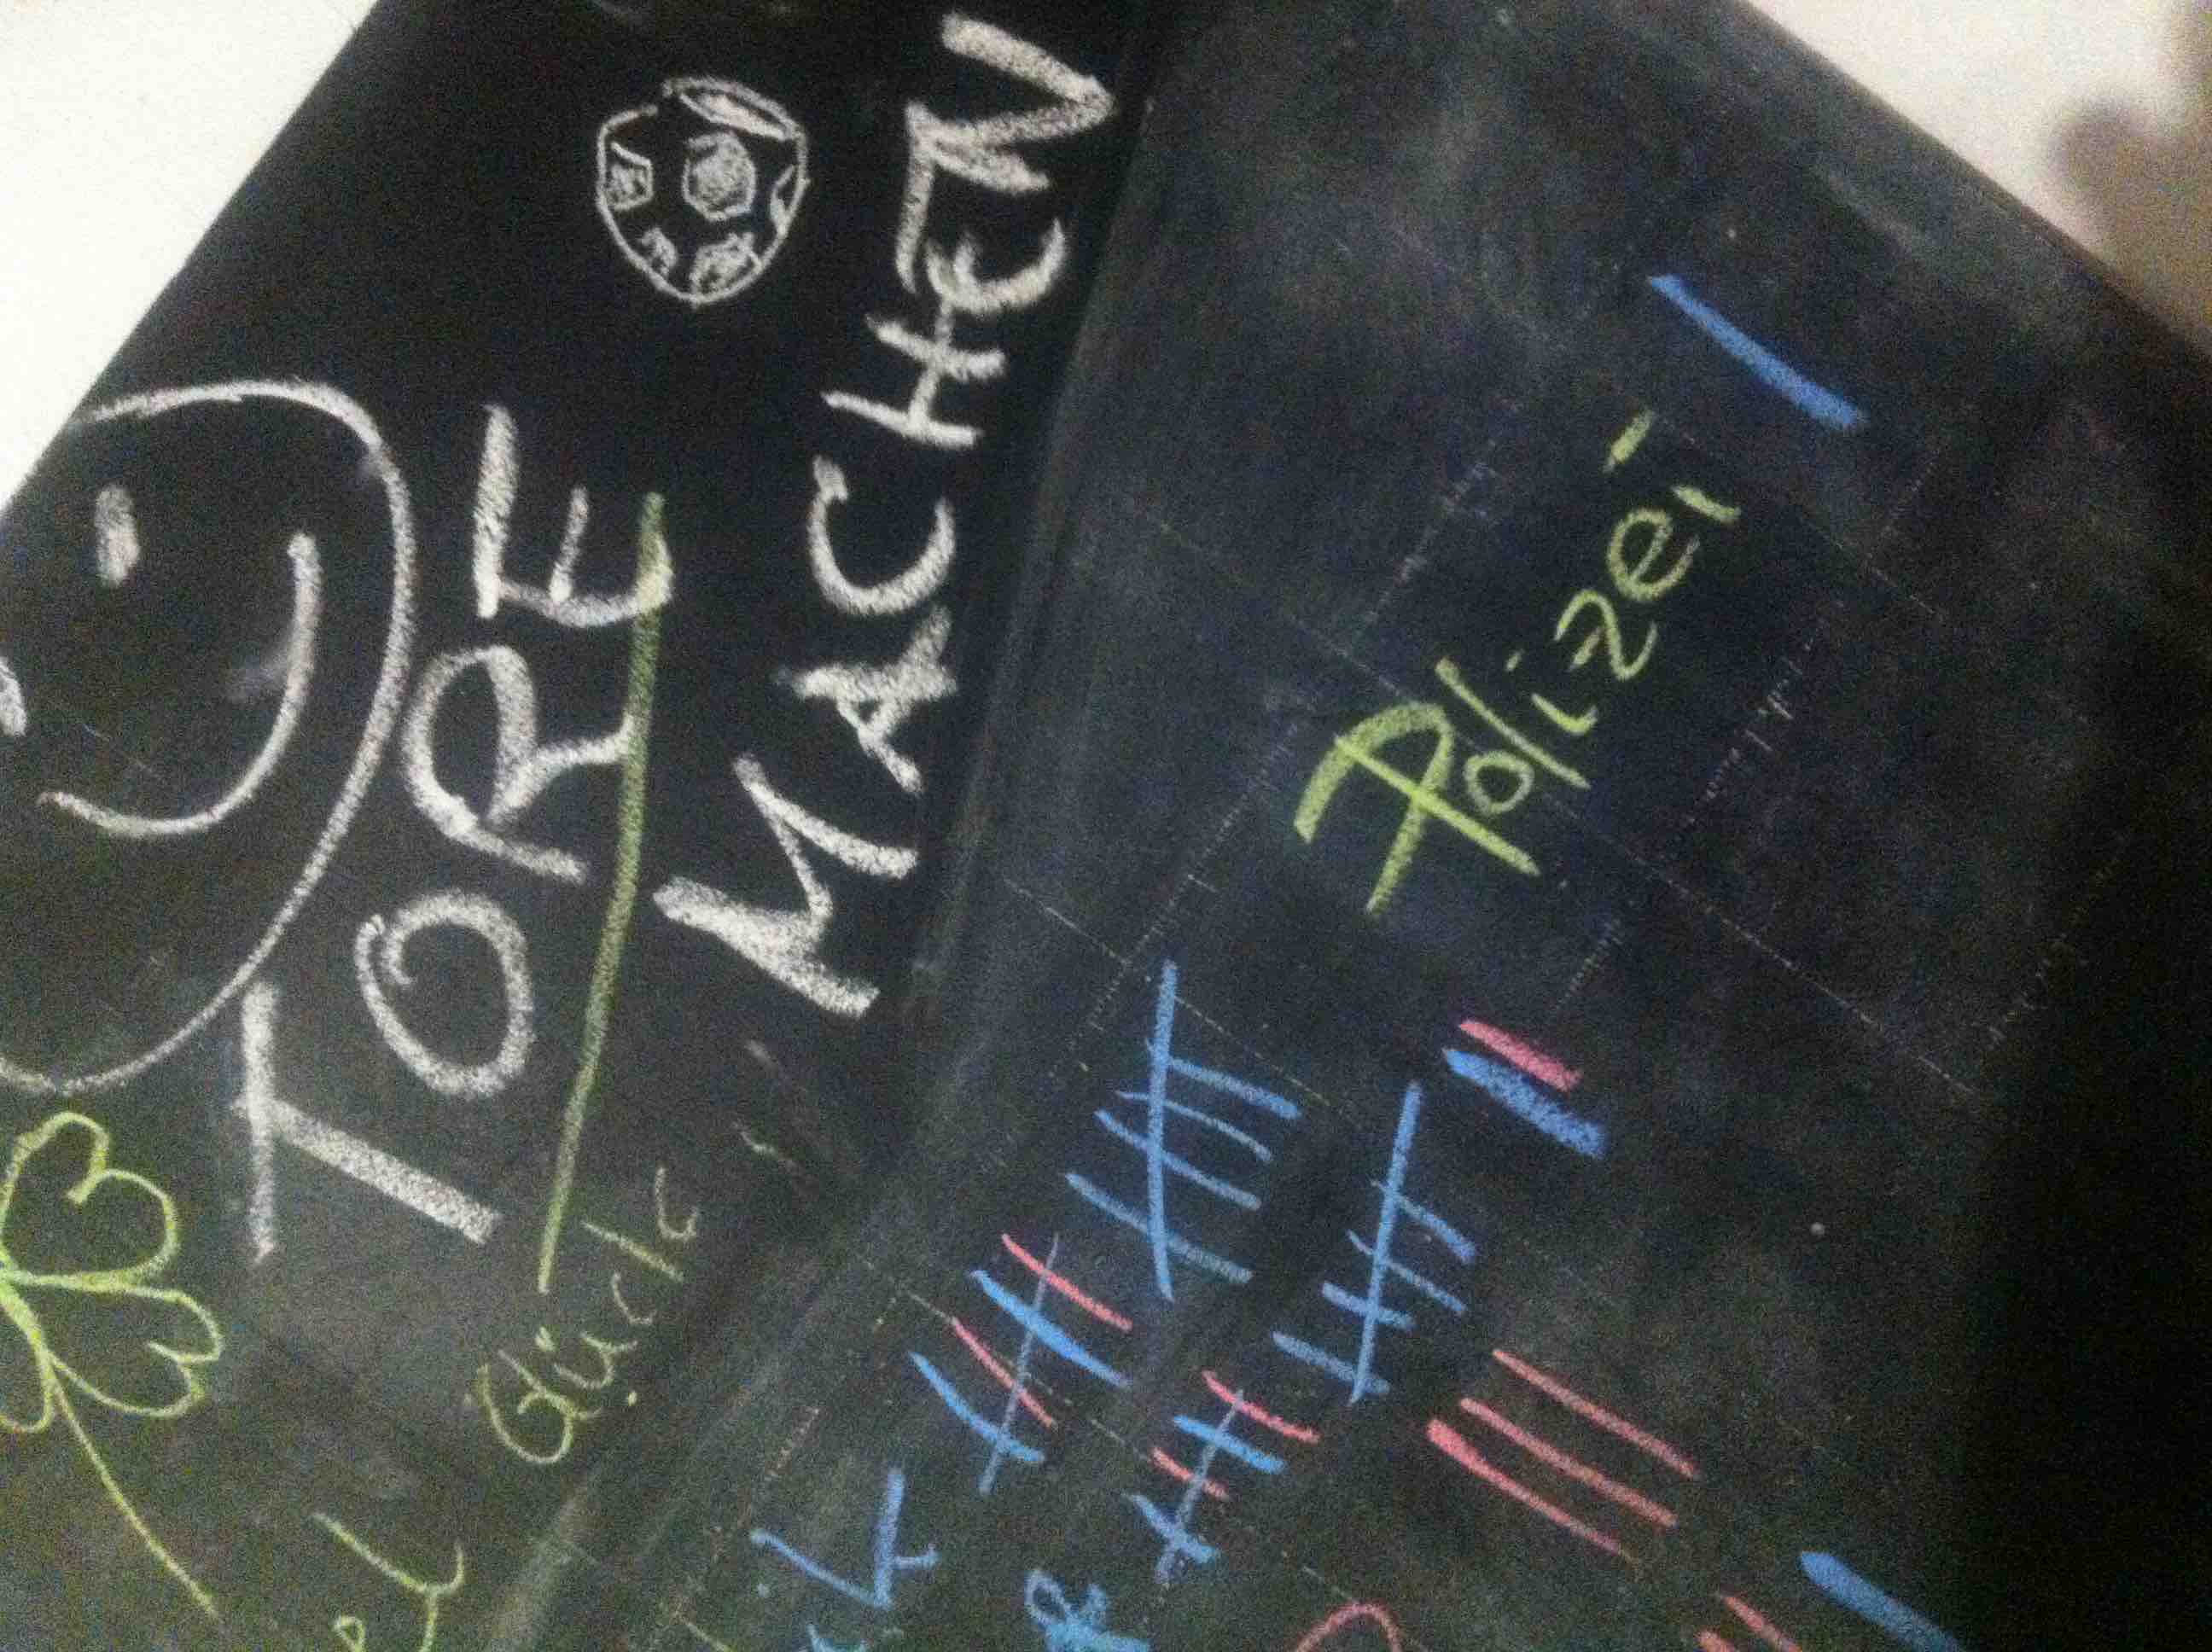 TORE
MACHEN
Glück
Polizei